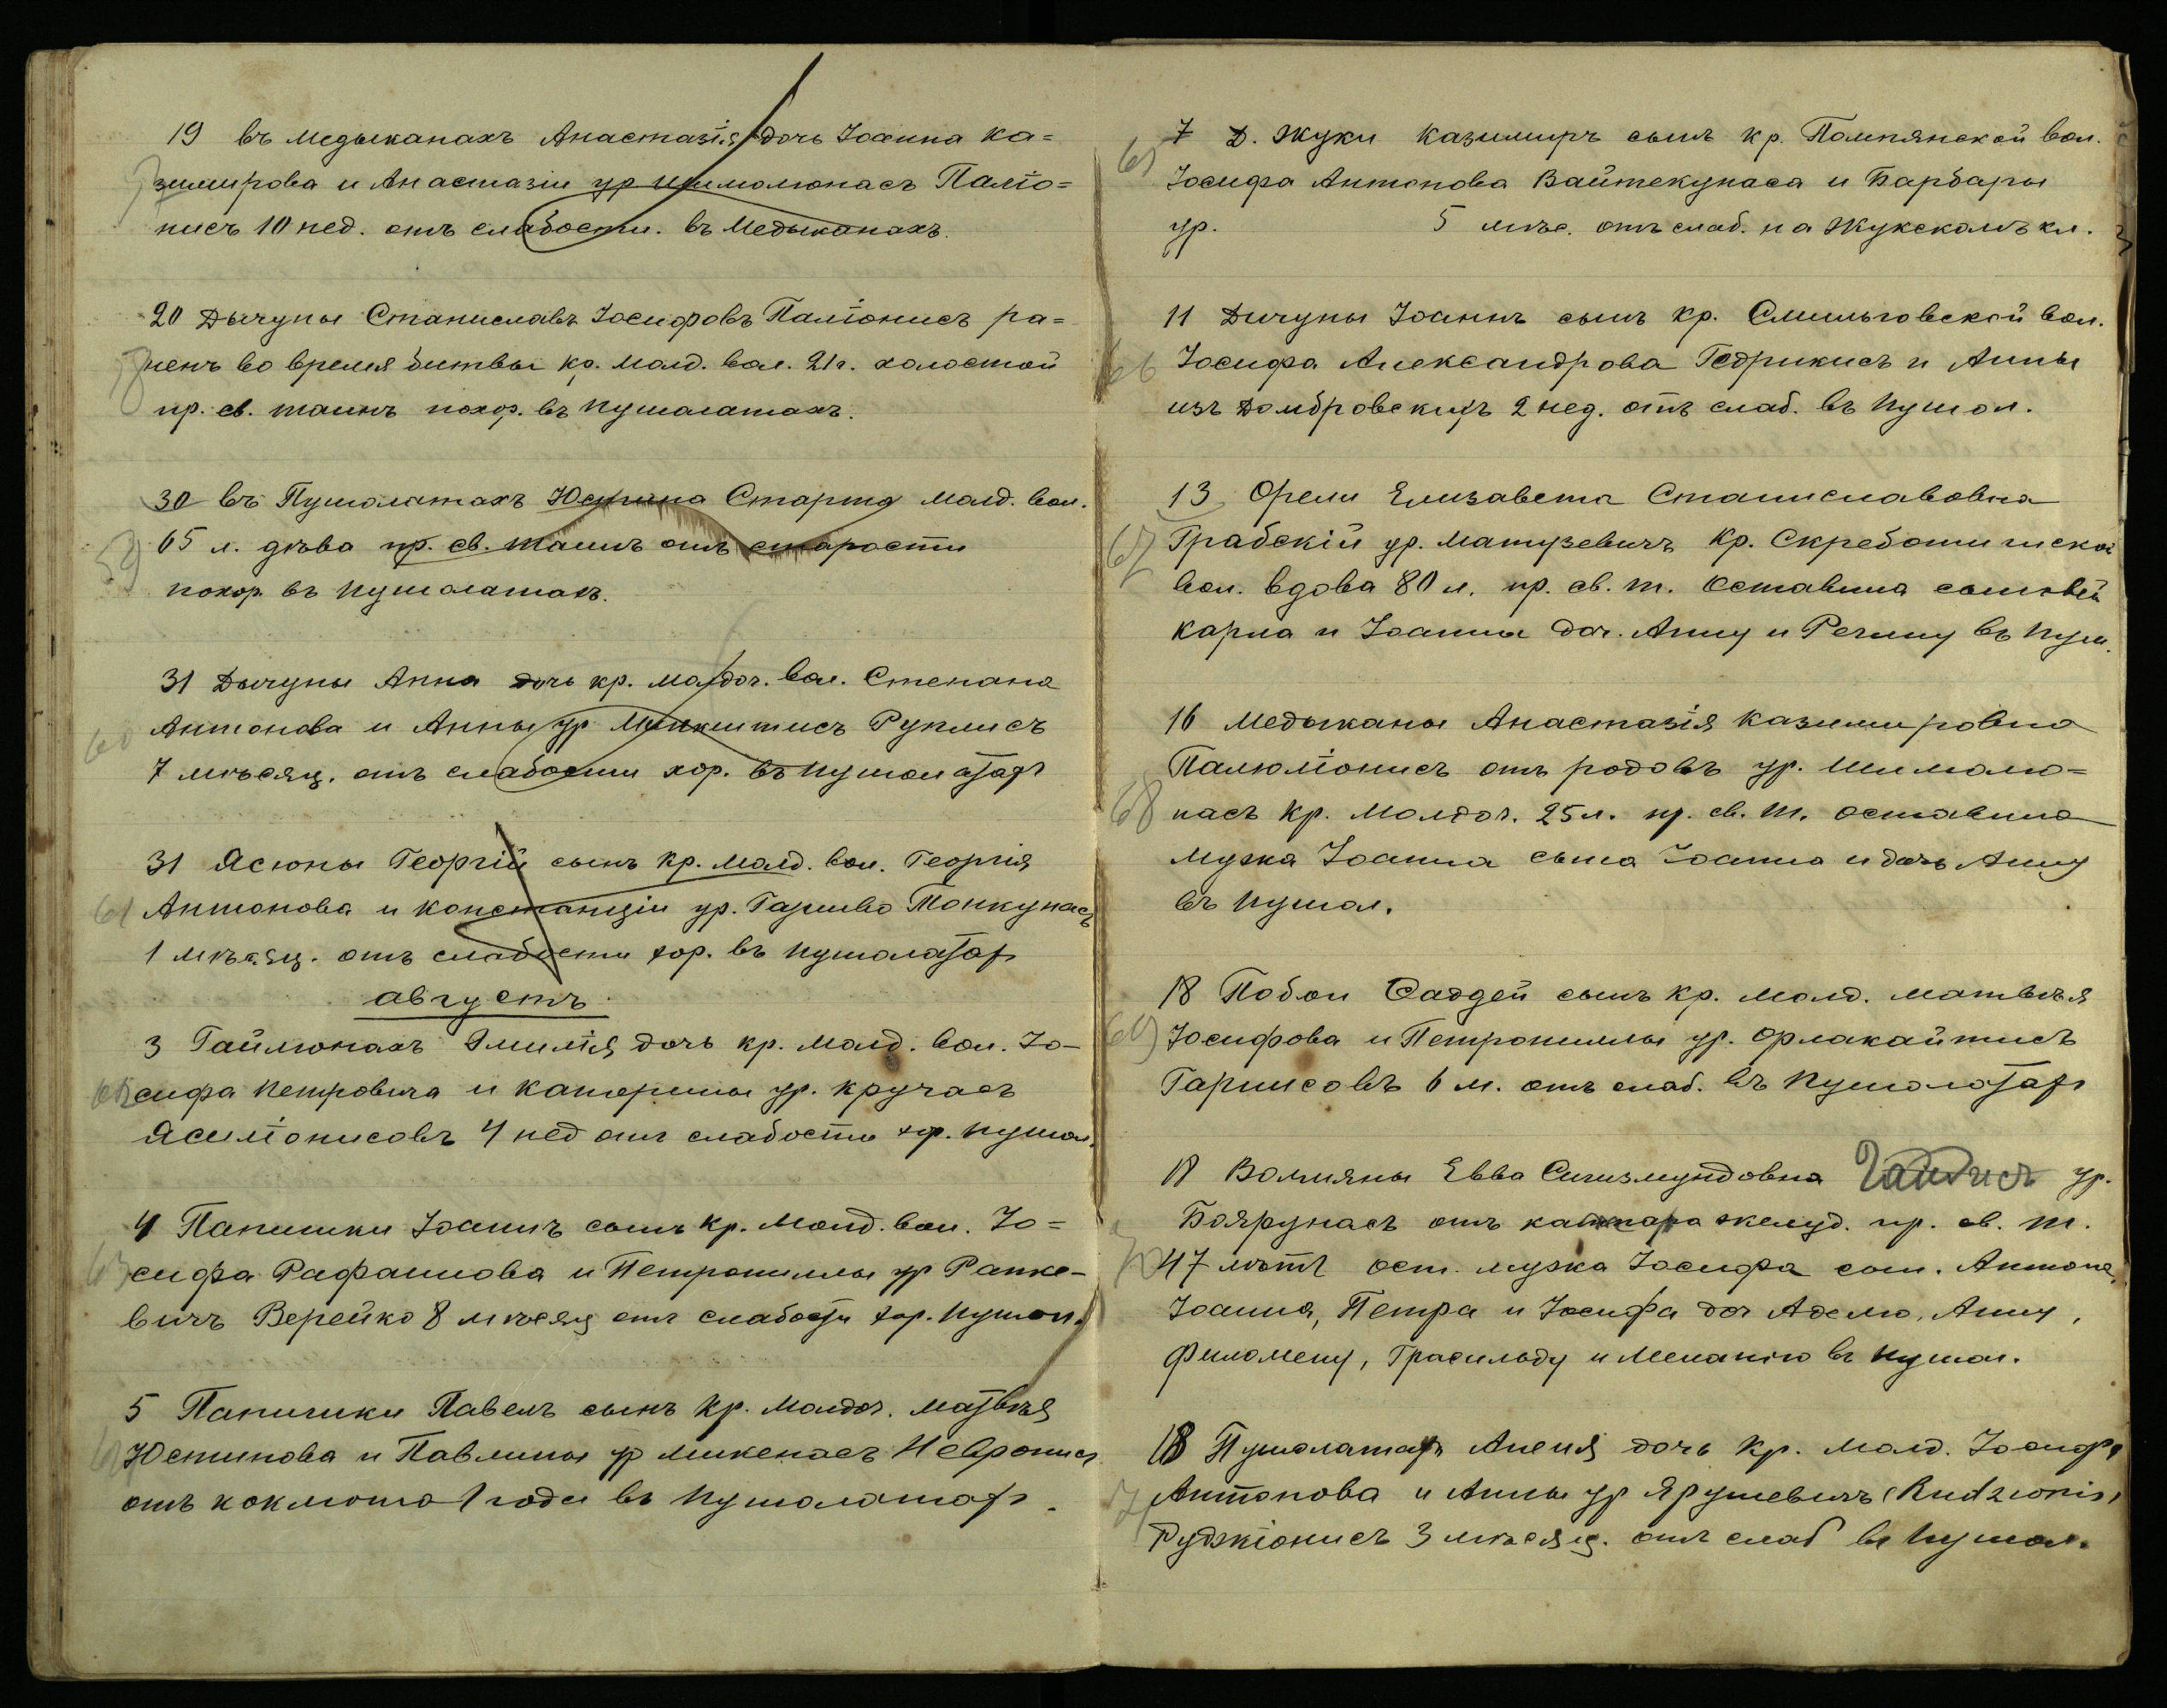 19 въ Медыканахъ Анастазія дочь Іоанна Ка=
57
зимирова и Анастазіи ур Шимолюнасъ Паліо=
нисъ 10 нед. отъ слабости. въ Медыканахъ.
20 Дычуны Станиславъ Іосифовъ Паліонисъ ра=
58
ненъ во время битвы кр. Молд. вол. 21 г. холостой
пр. св. таинъ похор. въ Пушалатахъ.
30 въ Пушолатахъ Юстина Старта Молд. вол.
59
65 л. дѣва пр. св. таинъ отъ старости
похор. въ Пушолатахъ.
31 Дычуны Анна дочь кр. Молдоч. вол. Степана
60
Антонова и Анны ур Минкштисъ Руплисъ
7 мѣсяц. отъ слабости хор. въ Пушолатахъ
31 Ясюны Георгій сынъ кр. Молд. вол. Георгія
61
Антонова и Констанціи ур. Гаршво Понкунасъ
1 мѣсяц. отъ слабости хор. въ Пушолатахъ
августъ
3 Гайлюнахъ Эмилія дочь кр. Молд. вол. Іо-
62
сифа Петровича и Катерины ур. Кручасъ
Ясиліонисовъ 4 нед отъ слабости хор. Пушол.
4 Папишки Іоаннъ сынъ кр. Молд. вол. Іо=
63
сифа Рафаилова и Петрониллы ур Рапке-
вичъ Верейко 8 мѣсяц отъ слабости хор. Пушол.
5 Папишки Павелъ сынъ кр. Молдоч. Матвѣя
64
Юстинова и Павлины ур Микенасъ Невронисъ
отъ коклюша 1 года въ Пушалатахъ.
7 Д. Жуки Казимиръ сынъ кр. Помпянской вол.
65
Іосифа Антонова Вайтекунаса и Барбары
ур. 5 мѣс. отъ слаб. на Жукскомъ кл.
11 Дичуны Іоаннъ сынъ кр. Смильговской вол.
66
Іосифа Александрова Гедрикисъ и Анны
изъ Домбровскихъ 2 нед. отъ слаб. въ Пушол.
13 Орели Елизавета Станиславовна
67
Грабскій ур. Матузевичъ кр. Скреботишской
вол. вдова 80 л. пр. св. т. оставила сыновей
Карла и Іоанна доч. Анну и Регину въ Пуш.
16 Медыканы Анастазія Казимировна
Палюліонисъ отъ родовъ ур. Шимолю=
68
насъ кр. Молдоч. 25 л. пр. св. т. оставила
мужа Іоанна сына Іоанна и дочь Анну
въ Пушол.
18 Побои Фаддей сынъ кр. Молд. Матвѣя
69
Іосифова и Петрониллы ур. Орлакайтисъ
Гаршсовъ 6 м. отъ слаб. въ Пушолатахъ
18 Вольяны Евва Сигизмундовна Гайдисъ ур.
Боярунасъ отъ катара желуд. пр. св. т.
70
47 лѣтъ ост. мужа Іосифа сын. Антона,
Іоанна, Петра и Іосифа доч Аделю, Анну,
Филомену, Грасильду и Меланію въ Пушол.
18 Пушолатахъ Алена дочь кр. Молд. Іосифа
71
Антонова и Анны ур Ярушевичъ (Rudzionis)
Руджіонисъ 3 мѣсяц. отъ слаб въ Пушол.